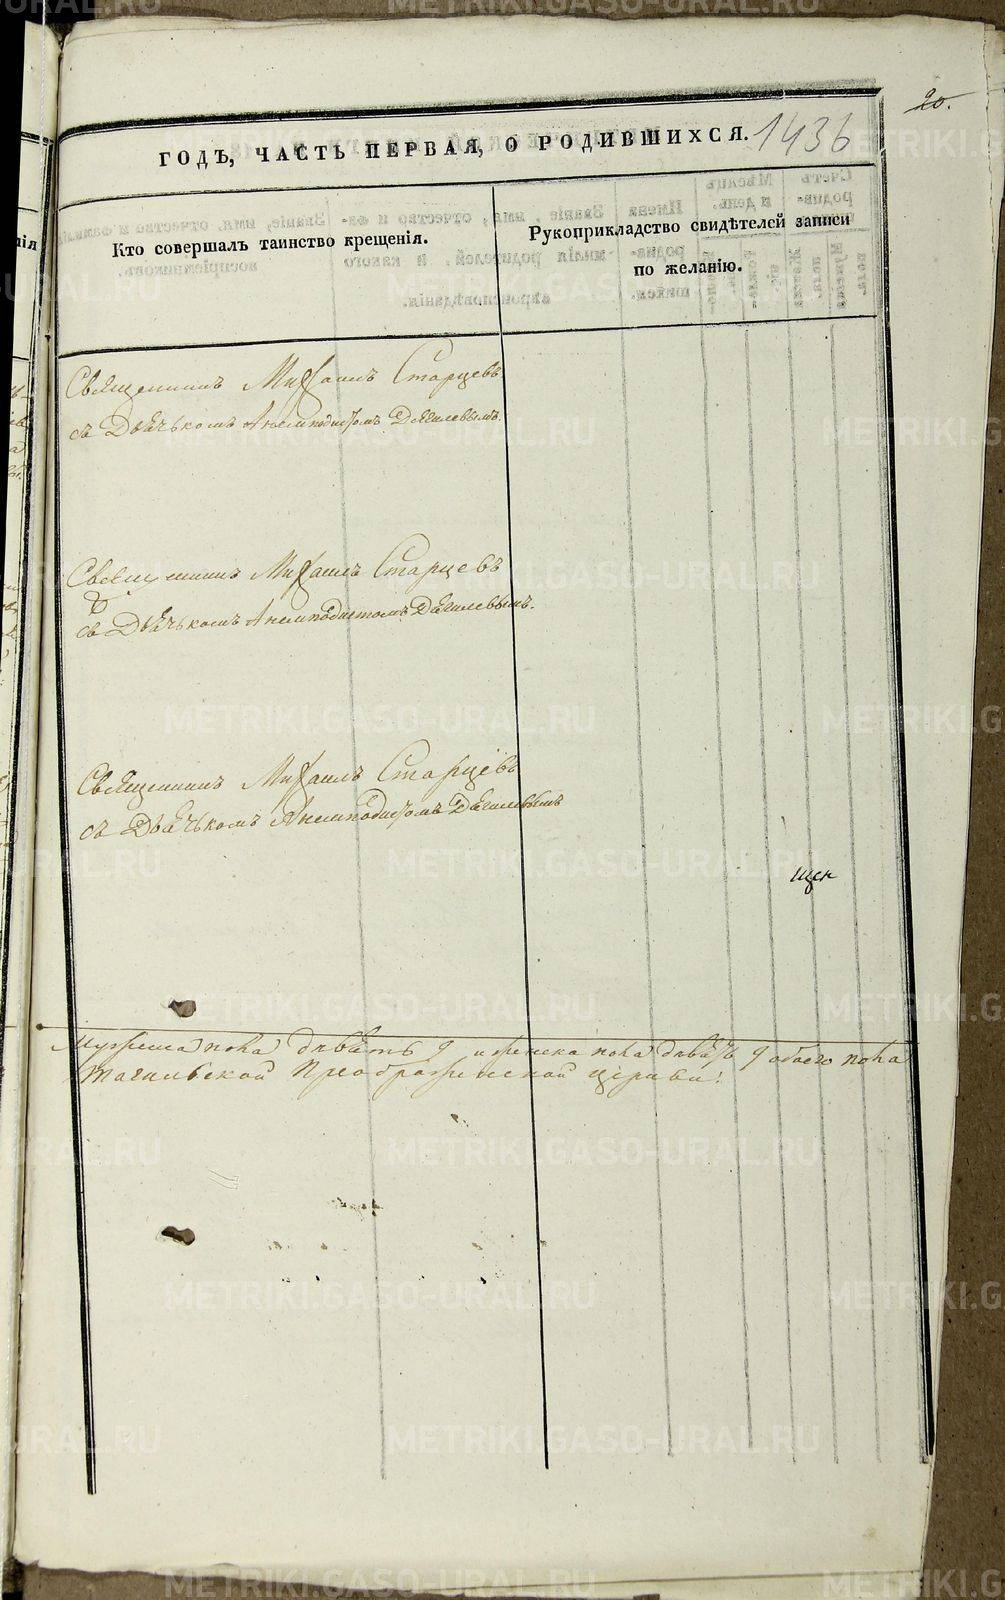 20.
ГОДЪ, ЧАСТЬ ПЕРВАЯ, О РОДИВШИХСЯ. 1436
Кто совершалъ таинство крещенія.
Рукоприкладство свидѣтелей записи
по желанію.
Священникъ Михаилъ Старцевъ
съ Дьячькомъ Анемподистомъ Дягилевымъ.
Священникъ Михаилъ Старцевъ
съ Дьячькомъ Анемподистомъ Дягилевымъ.
Священникъ Михаилъ Старцевъ
съ Дьячькомъ Анемподистомъ Дягилевымъ
щен
Мужеска пола девѣть 9 и женска пола девѣть 9 обоего пола
Тагильской Преображенской Церкви:
METRIKI.GASO-URAL.RU